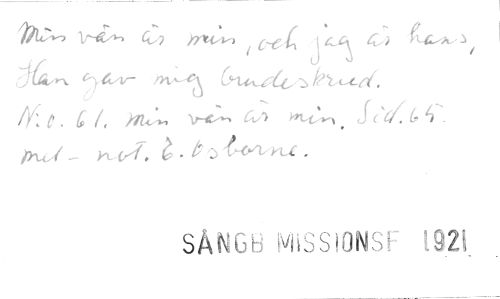 Min vän är min, och jag är hans,
Han gav mig brudeskrud.
N:o. 61. min vän är min. Sid. 65.
mel - not. E. Osborne.
SÅNGB MISSIONSF 1921